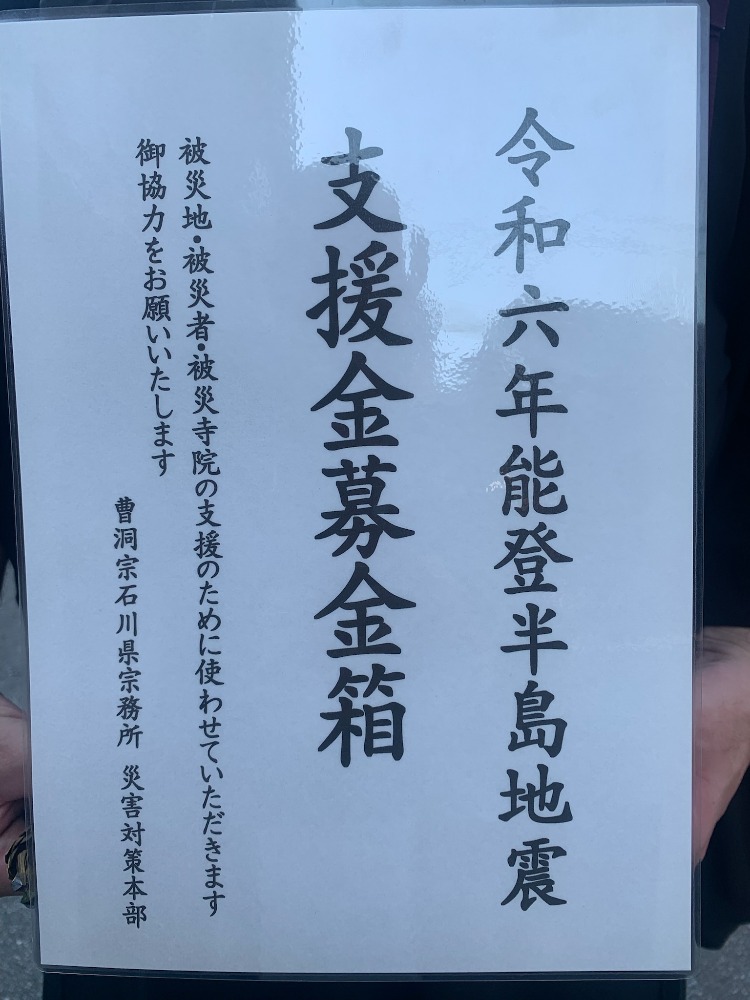 令和六年能登半島地震
支援金募金箱
被災地・被災者・被災寺院の支援のために使わせていただきます
御協力をお願いいたします
曹洞宗石川県宗務所 災害対策本部